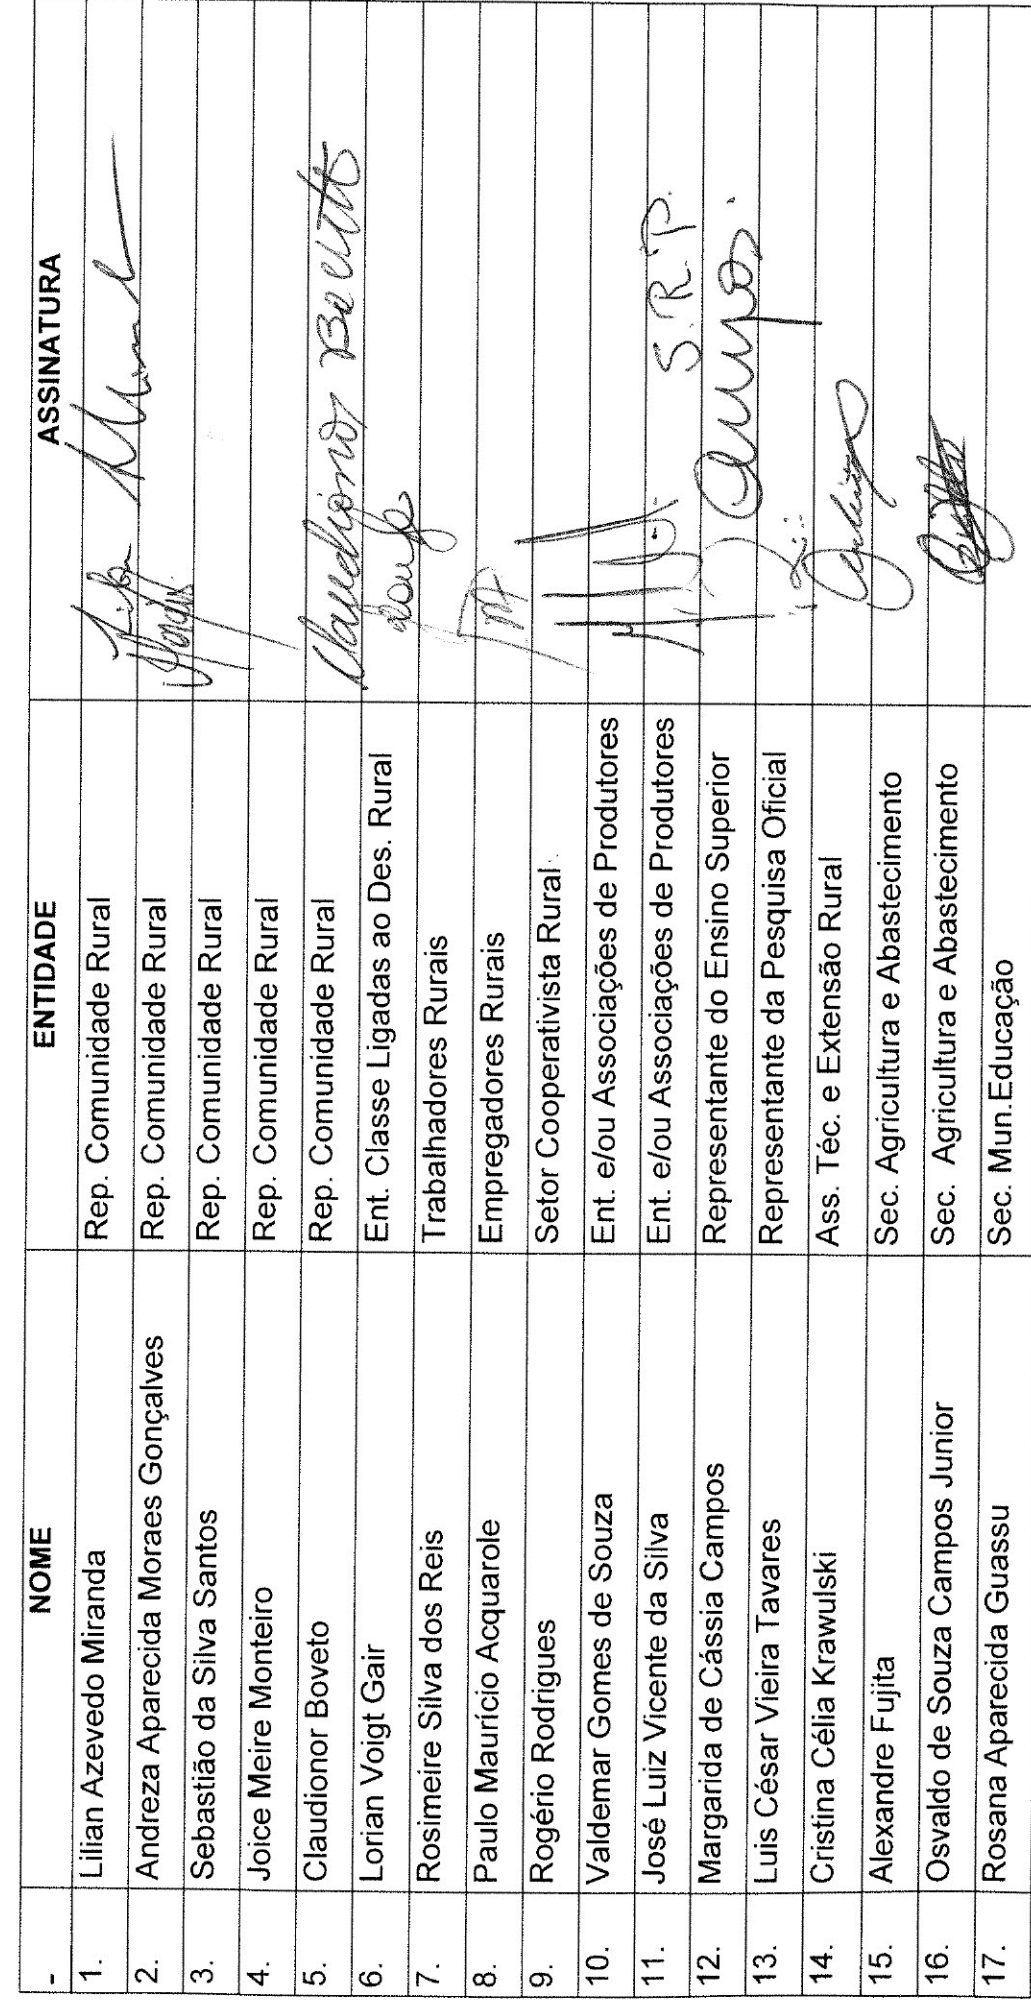 - NOME ENTIDADE ASSINATURA
1. Lilian Azevedo Miranda Rep. Comunidade Rural
2. Andreza Aparecida Moraes Gonçalves Rep. Comunidade Rural
3. Sebastião da Silva Santos Rep. Comunidade Rural
4. Joice Meire Monteiro Rep. Comunidade Rural
5. Claudionor Boveto Rep. Comunidade Rural Claudionor
6. Lorian Voigt Gair Ent. Classe Ligadas ao Des. Rural
7. Rosimeire Silva dos Reis Trabalhadores Rurais
8. Paulo Maurício Acquarole Empregadores Rurais
9. Rogério Rodrigues Setor Cooperativista Rural
10. Valdemar Gomes de Souza Ent. e/ou Associações de Produtores
11. José Luiz Vicente da Silva Ent. e/ou Associações de Produtores S.R.P.
12. Margarida de Cássia Campos Representante do Ensino Superior
13. Luis César Vieira Tavares Representante da Pesquisa Oficial
14. Cristina Célia Krawulski Ass. Téc. e Extensão Rural
15. Alexandre Fujita Sec. Agricultura e Abastecimento
16. Osvaldo de Souza Campos Junior Sec. Agricultura e Abastecimento
17. Rosana Aparecida Guassu Sec. Mun.Educação